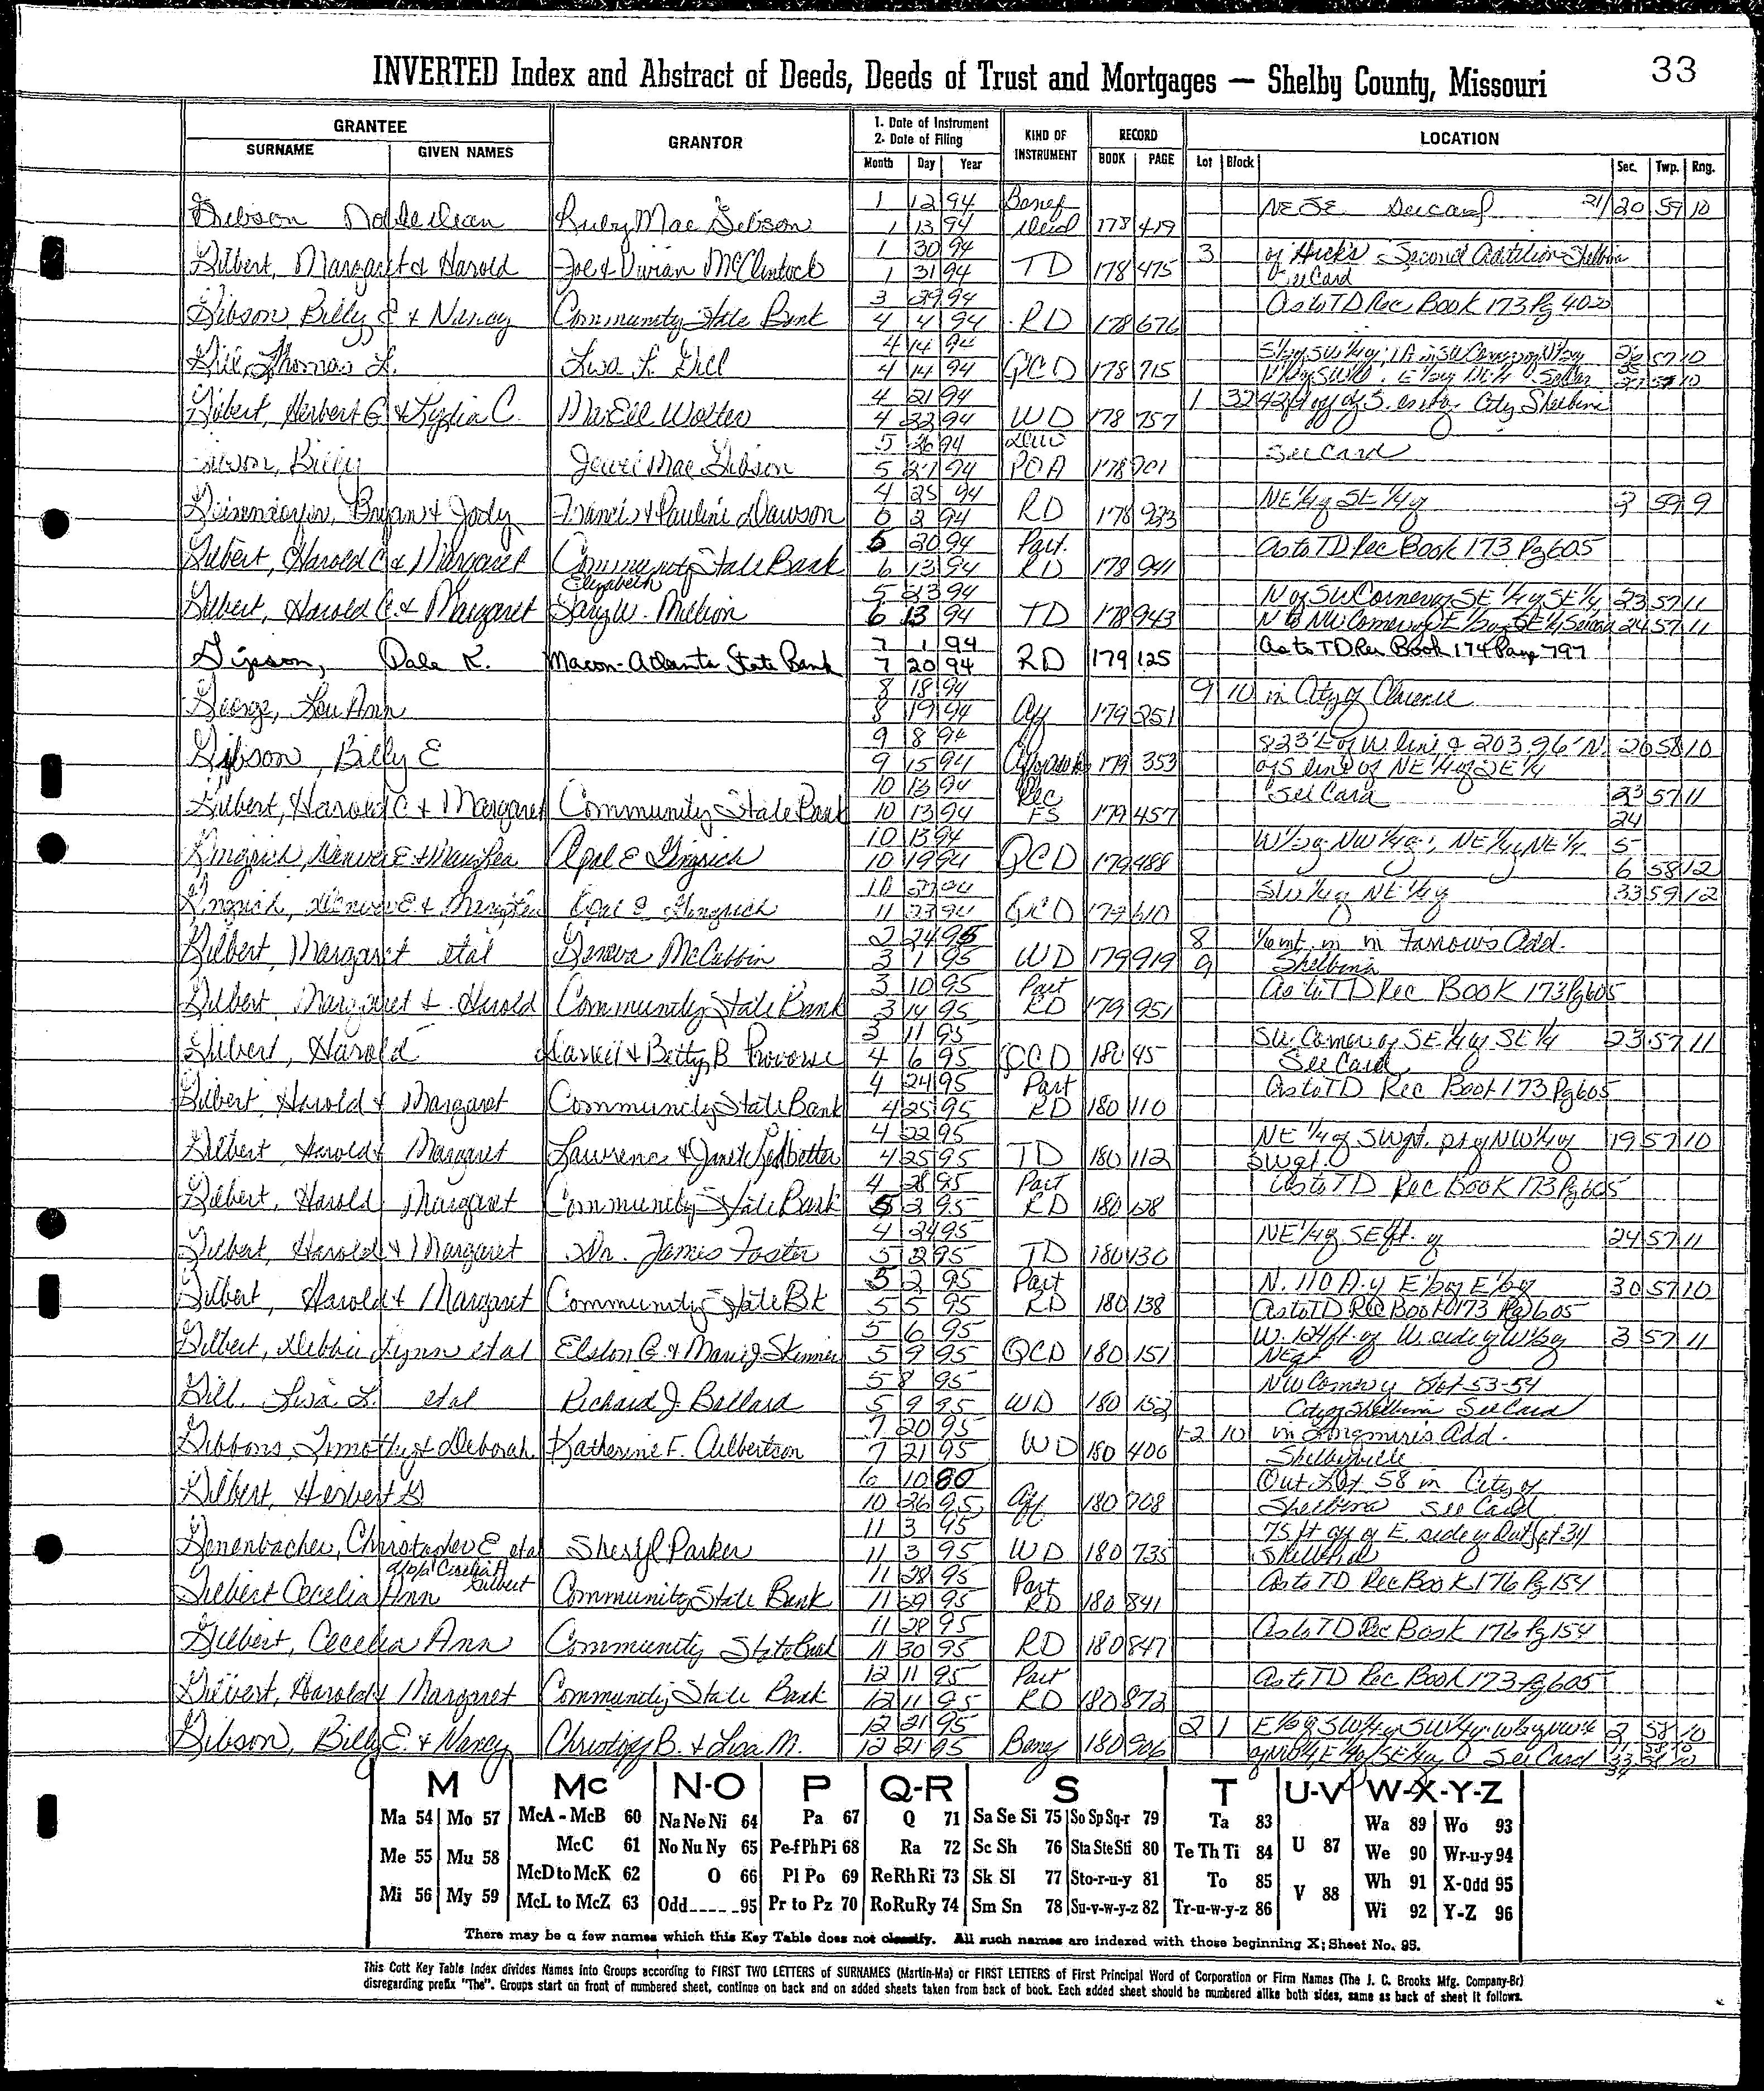 33
INVERTED Index and Abstract of Deeds, Deeds of Trust and Mortgages — Shelby County, Missouri
GRANTEE GRANTOR 1. Date of Instrument 2. Date of Filing KIND OF INSTRUMENT RECORD LOCATION
SURNAME GIVEN NAMES Month Day Year BOOK PAGE Lot Block Sec. Twp. Rng.
Gibson Ruby Mae Gibson 1 12 94 1 13 94 Benef Deed 178 419 NE SE See card 20 59 10
Gilbert, Margaret & Harold Joe & Vivian McClintock 1 30 94 1 31 94 TD 178 475 3 of Hicks Second Addition Shelbina See Card
Gibson Billy E & Nancy Community State Bank 3 29 94 4 4 94 RD 178 676 As to TD Rec Book 173 Pg 402
Gill, Thomas L. Lisa L. Gill 4 14 94 4 14 94 QCD 178 715
Gilbert, Herbert G & Lydia C. Wolter 4 21 94 4 22 94 WD 178 757 1 32 City Shelbina
Gibson, Billy Mae Gibson 5 26 94 5 27 94 POA 178 901 See Card
Bryan & Jody Francis & Pauline Dawson 4 25 94 6 2 94 RD 178 933 NE 1/4 of SE 1/4 of 3 59 9
Gilbert, Harold C & Margaret Community State Bank 5 20 94 6 13 94 Part. RD 178 941 As to TD Rec Book 173 Pg 605
Gilbert, Harold C. & Margaret Gary W. Elizabeth Million 5 23 94 6 13 94 TD 178 943 N of SW Corner of SE 1/4 of SE 1/4 23 57 11 24 57 11
Gipson, Dale K. Macon-Atlanta State Bank 7 1 94 7 20 94 RD 179 125 As to TD Rec Book 174 Page 797
George, Lou Ann 8 18 94 8 19 94 Aff 179 251 9 10 in City of Clarence
Gibson, Billy E 9 8 94 9 15 94 179 353 823' E of W line & 203.96' N. of S line of NE 1/4 of SE 1/4 26 58 10
Gilbert, Harold C & Margaret Community State Bank 10 13 94 10 13 94 Rec FS 179 457 See Card 23 57 11 24
Gingrich, Opal E Gingrich 10 13 94 10 19 94 QCD 179 488 W 1/2 of NW 1/4 of; NE 1/4 of NE 1/4 5 6 58 12
Gingrich, Opal E Gingrich 11 23 94 QCD 179 610 SW 1/4 of NE 1/4 of 33 59 12
Gilbert, Margaret etal Geneva McCubbin 2 24 95 3 1 95 WD 179 919 8 9 in Farrows Add. Shelbina
Gilbert Margaret & Harold Community State Bank 3 10 95 3 14 95 Part RD 179 951 As to TD Rec Book 173 Pg 605
Gilbert, Harold & Betty B 3 11 95 4 6 95 QCD 180 45 SW Corner of SE 1/4 of SE 1/4 See Card 23 57 11
Gilbert, Harold & Margaret Community State Bank 4 24 95 4 25 95 Part RD 180 110 As to TD Rec Book 173 Pg 605
Gilbert, Harold & Margaret Lawrence & Janet Ledbetter 4 22 95 4 25 95 TD 180 112 NE 1/4 of SW pt. of NW 1/4 of SW qt. 19 57 10
Gilbert, Harold Margaret Community State Bank 4 28 95 5 3 95 Part RD 180 128 As to TD Rec Book 173 Pg 605
Gilbert, Harold & Margaret Dr. James Foster 4 24 95 5 2 95 TD 180 130 NE 1/4 of SE 24 57 11
Gilbert, Harold & Margaret Community State Bk 5 2 95 5 5 95 Part RD 180 138 N. 110 A. of E 1/2 of E 1/2 of As to TD Rec Book 173 Pg 605 30 57 10
Gilbert, Debbie Lynn etal Elston G. & Marie J. Skinner 5 6 95 5 9 95 QCD 180 151 W. 104 ft. of W. side of W 1/2 of 3 57 11
Gill, Lisa L. etal Richard J. Ballard 5 8 95 5 9 95 WD 180 152 NW Corner of Lot 53-54 City of Shelbina See Card
Gibbons, Timothy & Deborah Katherine F. Culbertson 7 20 95 7 21 95 WD 180 400 1-2 10 in Add. Shelbyville
Gilbert, Herbert G 6 10 80 10 26 95 Aff 180 708 Out Lot 58 in City of Shelbina See Card
Genenbacher, Christopher E etal Sheryl Parker 11 3 95 11 3 95 WD 180 735 75 ft off of E. side of Out Lot 34 Shelbina
Gilbert Cecelia Ann Community State Bank 11 28 95 11 29 95 Part RD 180 841 As to TD Rec Book 176 Pg 154
Gilbert, Cecelia Ann Community State Bank 11 28 95 11 30 95 RD 180 847 As to TD Rec Book 176 Pg 154
Gilbert, Harold & Margaret Community State Bank 12 11 95 12 11 95 Part RD 180 872 As to TD Rec Book 173 Pg 605
Gibson, Billy E. & Nancy B. & Lisa M. 12 21 95 12 21 95 Benef 180 906 2 1 See Card 2 58 10
M Mc N-O P Q-R S T U-V W-X-Y-Z
Ma 54 Mo 57 McA - McB 60 Na Ne Ni 64 Pa 67 Q 71 Sa Se Si 75 So Sp Sq-r 79 Ta 83 Wa 89 Wo 93
McC 61 No Nu Ny 65 Pe-f Ph Pi 68 Ra 72 Sc Sh 76 Sta Ste Sti 80 Te Th Ti 84 U 87 We 90 Wr-u-y 94
Me 55 Mu 58 McD to McK 62 O 66 Pl Po 69 Re Rh Ri 73 Sk Sl 77 Sto-r-u-y 81 To 85 V 88 Wh 91 X-Odd 95
Mi 56 My 59 McL to McZ 63 Odd_____95 Pr to Pz 70 Ro Ru Ry 74 Sm Sn 78 Su-v-w-y-z 82 Tr-u-w-y-z 86 Wi 92 Y-Z 96
There may be a few names which this Key Table does not classify. All such names are indexed with those beginning X; Sheet No. 95.
This Cott Key Table Index divides Names into Groups according to FIRST TWO LETTERS of SURNAMES (Martin-Ma) or FIRST LETTERS of First Principal Word of Corporation or Firm Names (The J. C. Brooks Mfg. Company-Br)
disregarding prefix "The". Groups start on front of numbered sheet, continue on back and on added sheets taken from back of book. Each added sheet should be numbered alike both sides, same as back of sheet it follows.